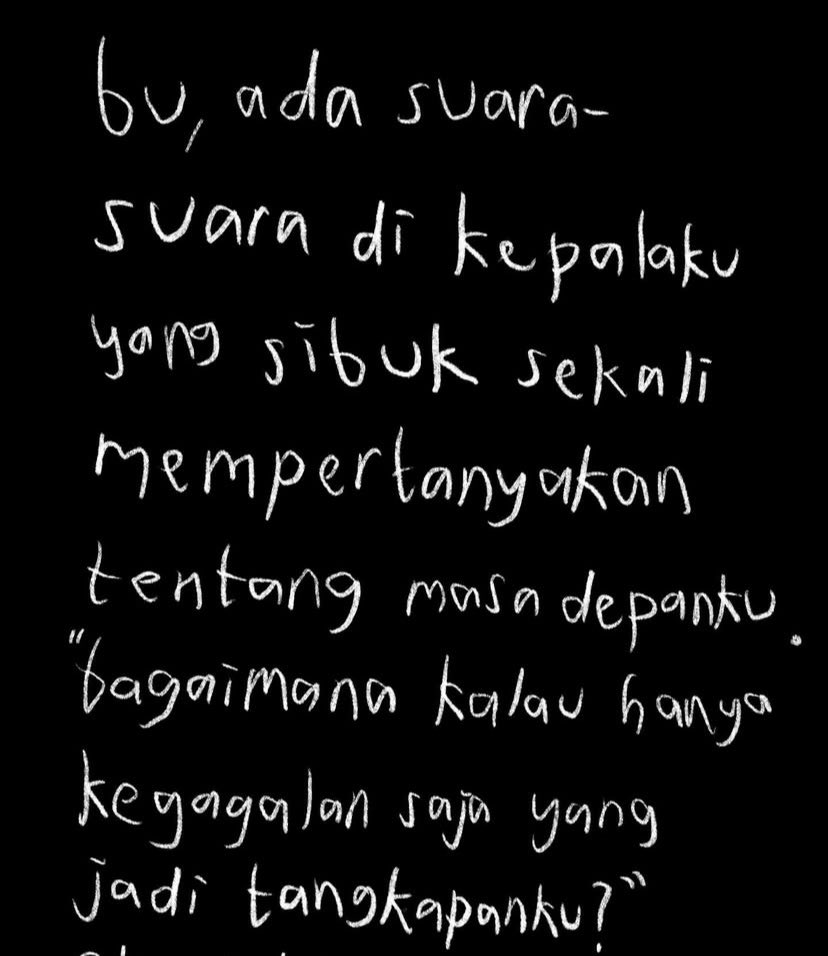 bu, ada suara-
suara di kepalaku
yang sibuk sekali
mempertanyakan
tentang masa depanku.
"bagaimana kalau hanya
kegagalan saja yang
jadi tangkapanku?"